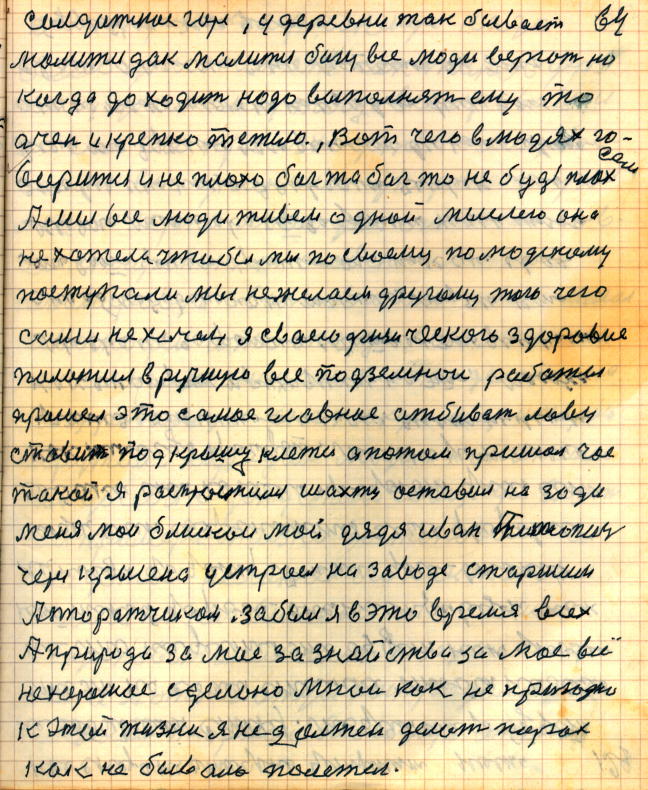 солдатное горе, у деревни так бывает ву
молити дак молити богу все люди верют но
когда доходит надо выполнят ему то
очен и крепко тежело., Вот чего в людях го-
верити и не плохо бог та бог то не будь сам плох
А мы все люди живем одной мыслею она
не хотела чтобы мы по своему по людскому
поступали мы не желаем другому того чего
сами не хочем, я своего физического здоровие
положил в ручную все подземной работы
прошел это самое главное отбиват лаву
ставит под крышу клети а потом пришол час
такой я распростилси шахту оставил на зади
меня мой близкой мой дядя иван
через устроил на заводе старшим
Аппоратчиком. забыл я в это время всех
А природа за мое зазнайства за мое всё
нехорошое сделоно мной как не
к этой жизни я не должен делат порах
как не бывало полетел.